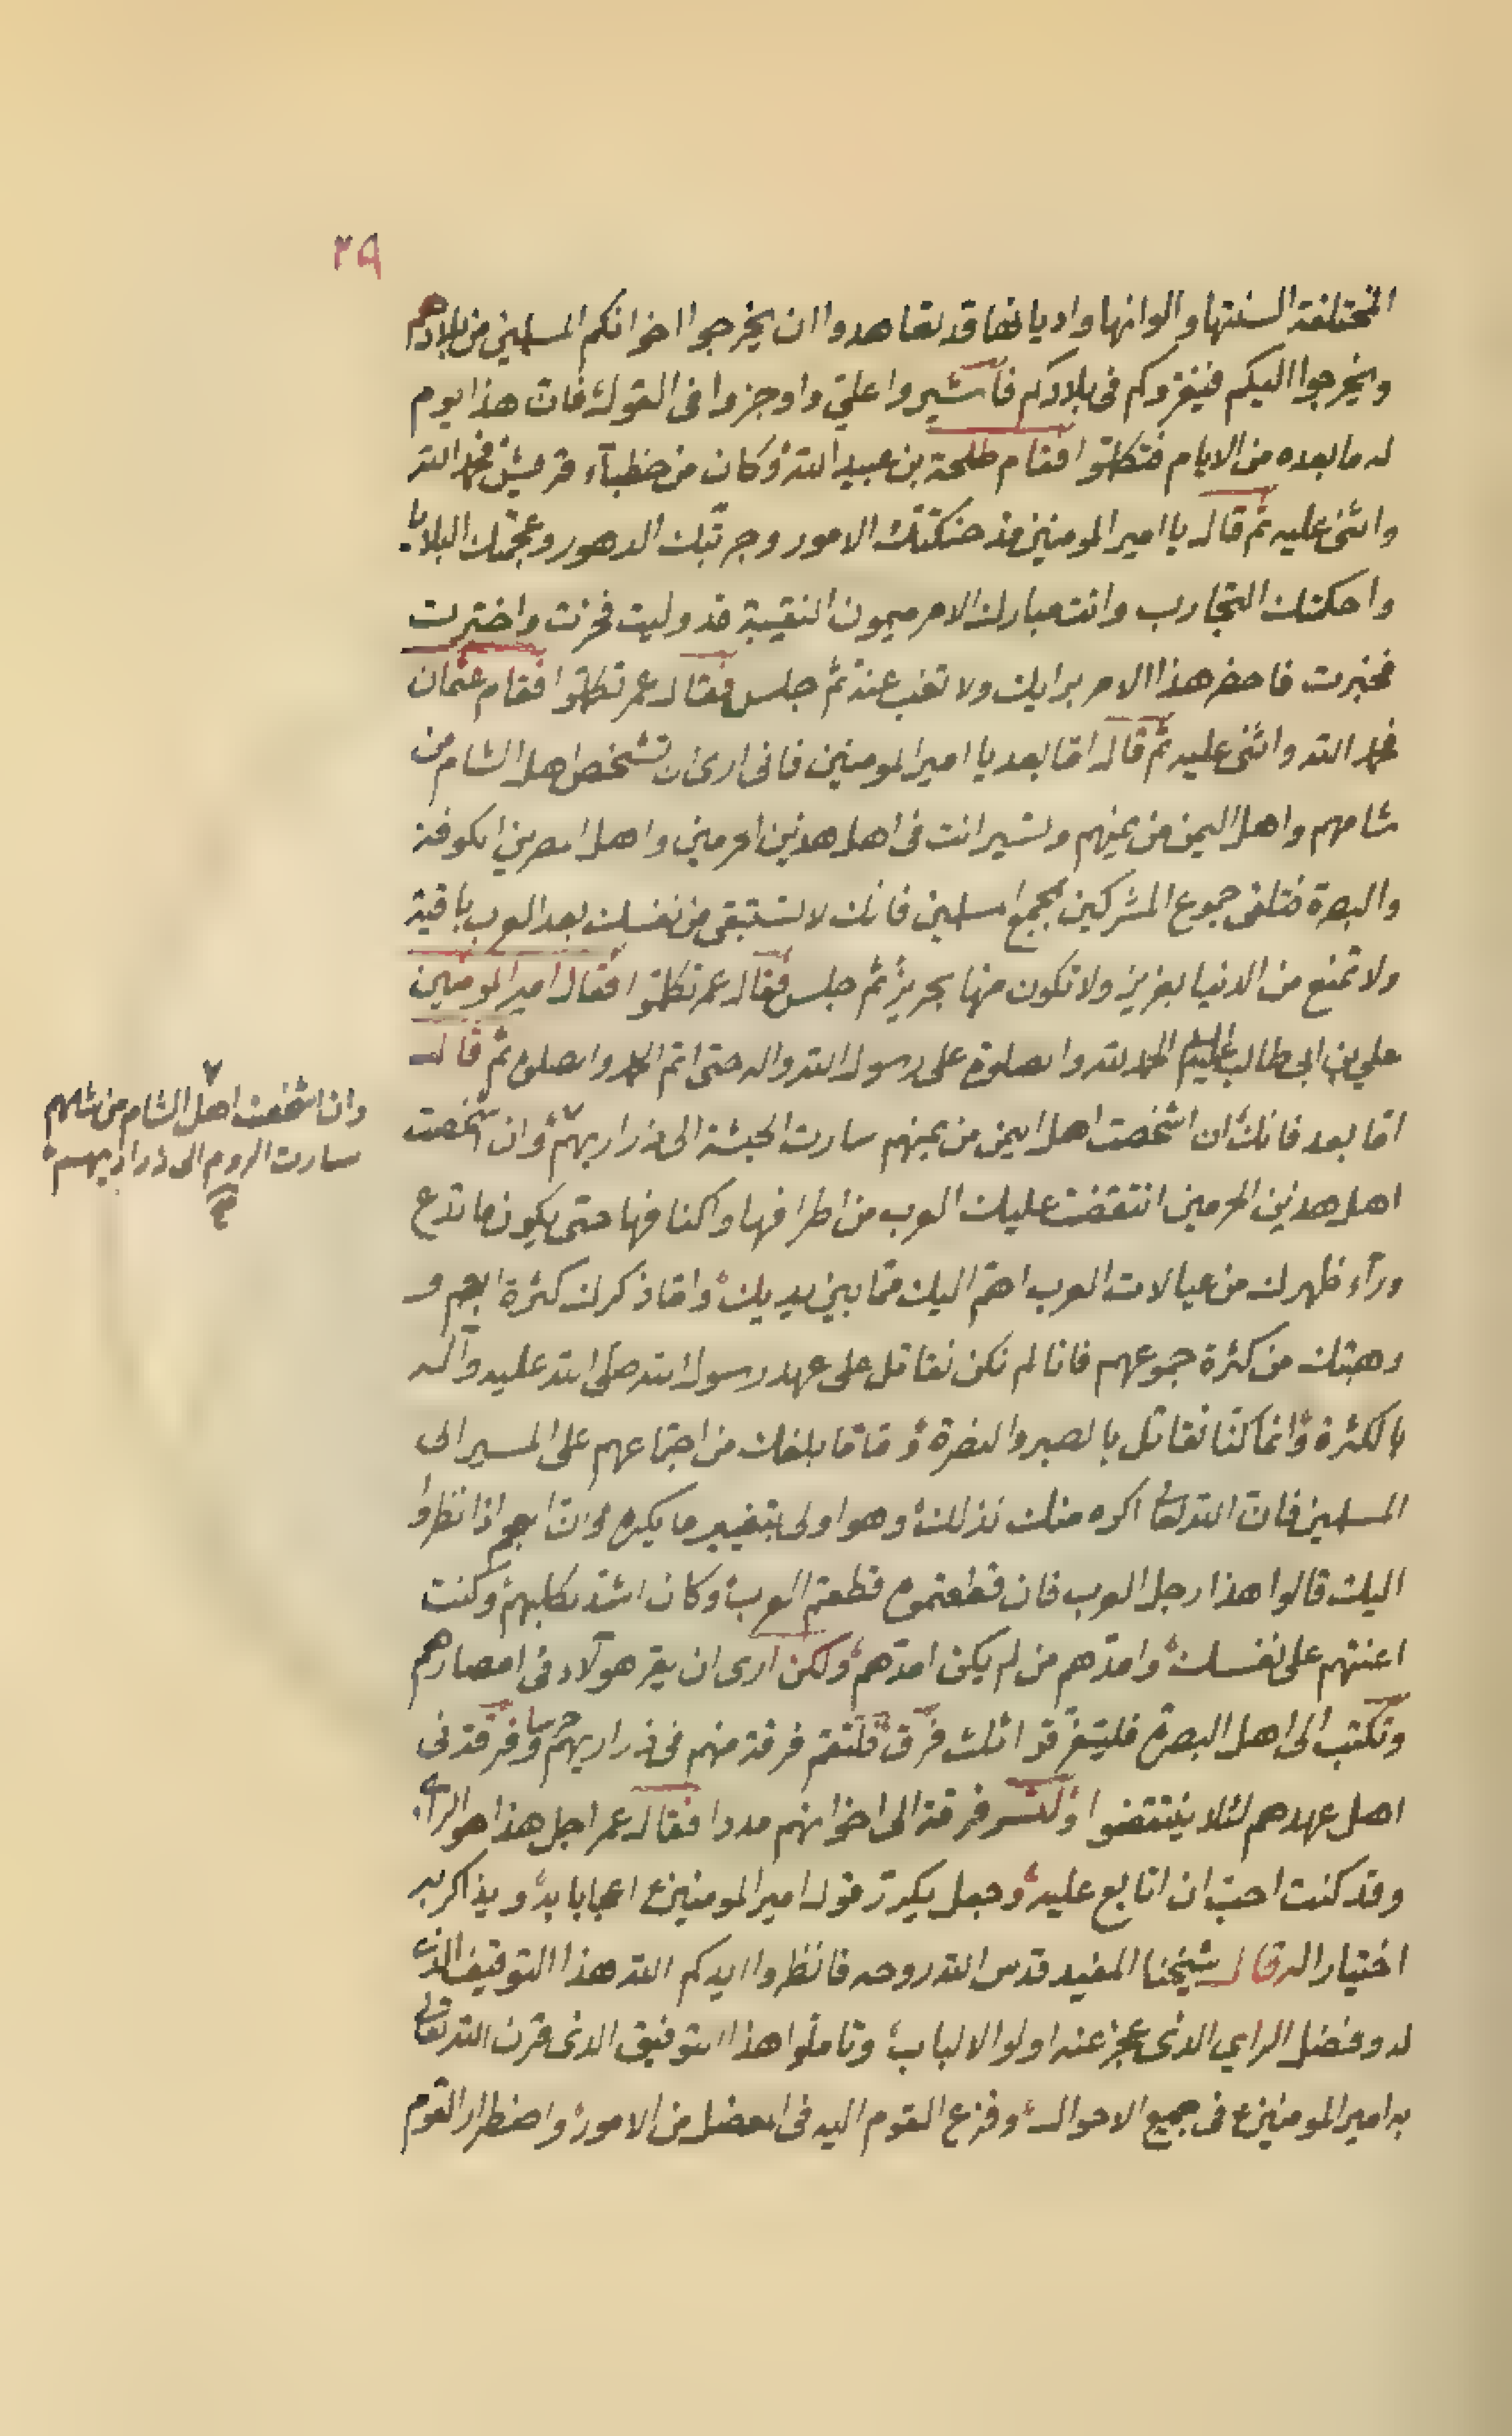 ٢٩
المختلفة السنتها والوانها واديانها قد تعاهدوا ان يخرجوا اخوانكم المسلمين من بلادهم
ويخرجوا اليكم فيغزوكم فى بلادكم فاشيروا علىّ واوجزوا فى القول فانّ هذا يوم
له ما بعده من الايام فتكلّموا فقام طلحة بن عبيد الله وكان من خطبآء قريش فحمد الله
واثنى عليه ثم قال يا امير المومنين قد حنكتك الامور وجرّبتك الدهور وعجمتك البلايا
واحكمتك التجارب وانت مبارك الامر ميمون النقيبة قد وليت فخبرت واختبرت
فخبرت فاحضر هذا الامر برايك ولا تغب عنه ثمّ جلس فقال عمر تكلّموا فقام عثمان
فحمد الله واثنى عليه ثمّ قال امّا بعد يا امير المومنين فانى ارى ان تشخص اهل الشام من
شامهم واهل اليمن من يمنهم وتسير انت فى اهل هذين الحرمين واهل المصرين الكوفة
والبصرة فتلقى جموع المشركين بجميع المسلمين فانك لا تستبقى من نفسك بعد العرب باقية
ولا تمتع من الدنيا بعزيز ولا تكون منها بحريز ثمّ جلس فقال عمر تكلّموا فقال امير المومنين
علي بن ابى طالب عليه السلم الحمد لله والصلوة على رسول الله واله حتى اتم الحمد والصلوة ثمّ قال
امّا بعد فانك ان اشخصت اهل اليمن من يمنهم سارت الحبشة الى ذراريهم وان اشخصت
وان اشخصت اهل الشام من شامهم
سارت الروم الى ذراريهم
اهل هذين الحرمين انتقضت عليك العرب من اطرافها واكنافها حتى يكون ما تدع
ورآء ظهرك من عيالات العرب اهمّ اليك ممّا بين يديك وامّا ذكرك كثرة العجم و
رهبتك من كثرة جموعهم فانا لم نكن نقاتل على عهد رسول الله صلّى الله عليه وآله
بالكثرة وانما كنّا نقاتل بالصبر والنصرة وامّا ما بلغك من اجتماعهم على المسير الى
المسلمين فانّ الله تعالى اكره منك لذلك وهو اولى بتغيير ما يكره وانّ العجم اذا نظروا
اليك قالوا هذا رجل العرب فان قطعتموه قطعتم العرب وكان اشدّ لكلبهم وكنت
اعنتهم على نفسك وامدّهم من لم يكن امدّهم ولكن ارى ان يقر هولآء فى امصارهم
وتكتب الى اهل البصرة فليتفرّقوا ثلث فرق فلتقم فرقة منهم فى ذراريهم حرسا وفرقة فى
اهل عهدهم لئلا ينتقضوا ولتسر فرقة الى اخوانهم مددا فقال عمر اجل هذا هو الراى
وقد كنت احبّ ان اتابع عليه وجعل يكرّر قول امير المومنين ع اعجابا به ويذاكر به
اختيارا له قال شيخنا المفيد قدس الله روحه فانظروا ايدكم الله هذا التوقيف الذى
له وفضل الراي الذى عجز عنه اولوا الالباب وتاملوا هذا التوفيق الذى قرن الله تعالى
به امير المومنين ع فى جميع الاحوال وفزع القوم اليه فى المعضل من الامور واضطرار القوم